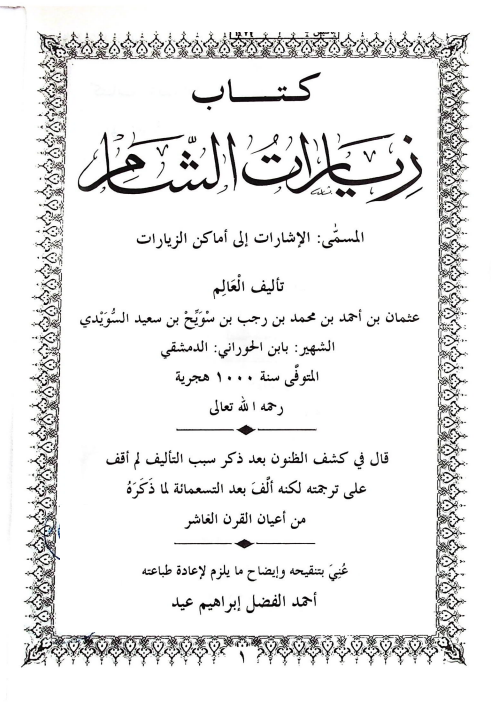 كتاب
زيارات الشام
المسمّى: الإشارات إلى أماكن الزيارات
تأليف الْعَالِم
عثمان بن أحمد بن محمد بن رجب بن سْوَيِّحْ بن سعيد السُّوَيْدي
الشهير: بابن الحوراني: الدمشقي
المتوفّى سنة ١٠٠٠ هجرية
رحمه الله تعالى
قال في كشف الظنون بعد ذكر سبب التأليف لم أقف
على ترجمته لكنه ألّفَ بعد التسعمائة لما ذَكَرَهُ
من أعيان القرن العَاشر
عُنِيَ بتنقيحه وإيضاح ما يلزم لإعادة طباعته
أحمد الفضل إبراهيم عيد
١